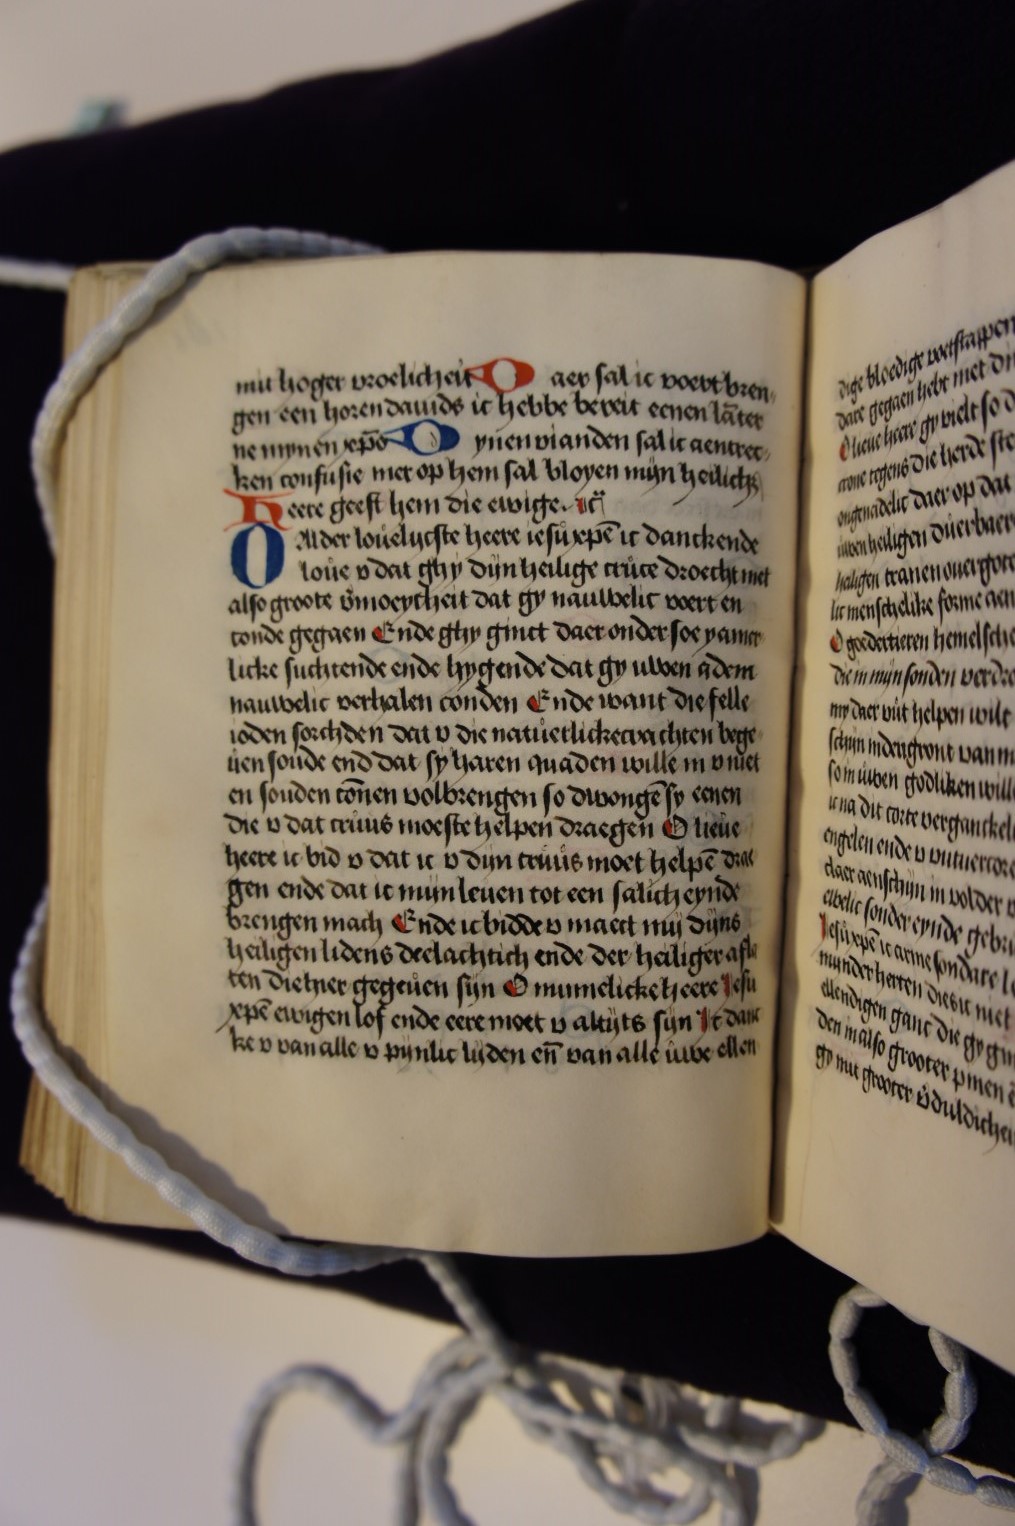 mit hoger vroelicheit D aer sal ic voert bren
gen een horen dauids ic hebbe bereit eenen lāter
ne mynen xp̄o M ynen vianden sal ic aentrec
ken confusie mer op hem sal bloyen mijn heilich
Heere geeft hem die ewige
O Alder loüelijcste heere iesu xp̄e ic danckende
loüe v dat ghy dijn heilige crüce droecht met
also groote v̄moeytheit dat gy nauwelic voert en
conde gegaen Ende ghy ginct daer onder soe yamer
licke suchtende ende hygende dat gy uwen adem
nauwelic verhalen conden Ende want die felle
ioden sorchden dat v die natuerlicke crachten bege
uen soude end dat sy haren quaden wille in v niet
en souden cōnen volbrengen so dwongē sy eenen
die v dat cruus moeste helpen draegen O lieue
heere ic bid v dat ic v dijn cruüs moet helpē drae
gen ende dat ic mijn leuen tot een salich eynde
brengen mach Ende ic bidde v maect mij dijns
heiligen lidens deelachtich ende der heiliger afla
ten die hier gegeuen sijn O minnelicke heere Jesu
xp̄e ewigen lof ende eere moet v altijts sijn Ic danc
ke v van alle v pijnlic lijden eñ van alle uwe ellen
dige bloedige voetstappen
dare gegaen hebt met
O lieue heere gy vielt so
crone tegens die herde
ongenadelic daer op dat
uwen heiligen duerbaer
heiligen tranen ouergote
lic menschelike forme aen
O goedertieren hemelsche
die in mijn sonden verdre
my daer uut helpen wilt
schijn inden gront van m
so in uwen godliken will
ic na dit corte verganckel
engelen ende v
claer aenschijn in volder
ewelic sonder eynde gebru
Jesu xp̄e ic arme sondare
minder herten dies ic niet
ellendigen ganc die gy gin
den in also grooter pinen
gy mit grooter v̄duldichei